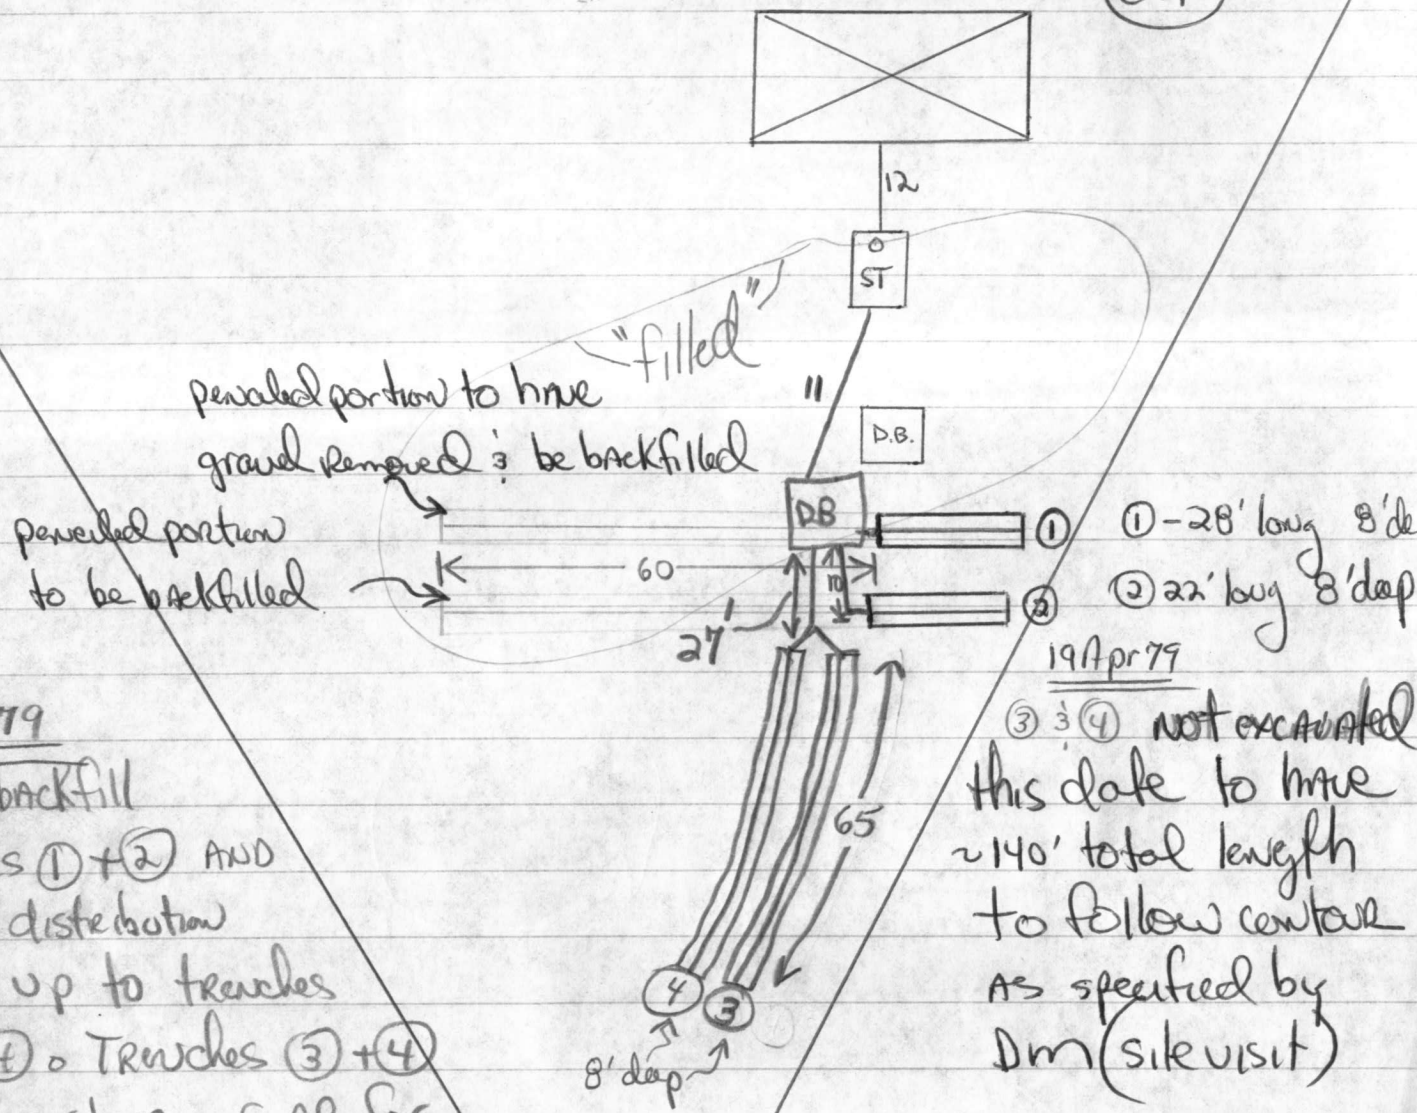 12
ST
"filled"
11
D.B.
penciled portion to have
gravel removed & be backfilled
DB
penciled portion
to be backfilled
60
10
27'
①
②
① - 28' long 8' de
② 22' long 8' deep
19 Apr 79
③ & ④ NOT EXCAVATED
this date to have
~140' total length
to follow contour
AS specified by
Dm (site visit)
65
④
③
8' deep
79
backfill
s ① + ② AND
distribution
up to trenches
Trenches ③ + ④